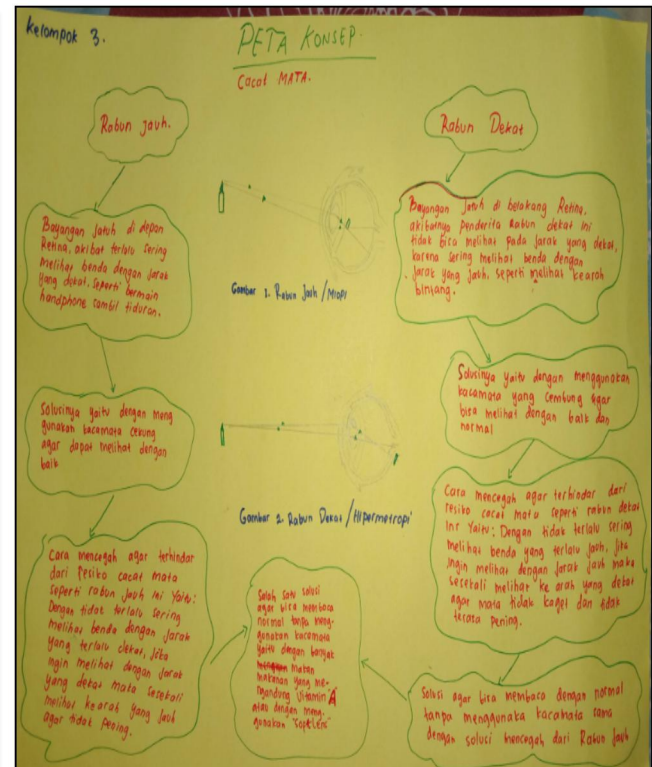 Kelompok 3.
PETA KONSEP.
Cacat MATA.
Rabun Jauh.
Bayangan jatuh di depan
Retina, akibat terlalu sering
melihat benda dengan jarak
yang dekat, seperti bermain
handphone sambil tiduran.
Solusinya yaitu dengan meng
gunakan kacamata cekung
agar dapat melihat dengan
baik
Cara mencegah agar terhindar
dari resiko cacat mata
seperti rabun jauh ini yaitu:
Dengan tidak terlalu sering
melihat benda dengan jarak
yang terlalu dekat, jika
ingin melihat dengan jarak
yang dekat maka sesekali
melihat kearah yang jauh
agar tidak pening.
Gambar 1. Rabun Jauh / Miopi
Gambar 2. Rabun Dekat / Hipermetropi
Salah satu solusi
agar bisa membaca
normal tanpa meng-
gunakan kacamata
yaitu dengan banyak
makan
makanan yang me-
ngandung vitamin A
atau dengan meng.
gunakan "Softlens"
Rabun Dekat
Bayangan jatuh di belakang Retina,
akibatnya penderita Rabun dekat ini
tidak bisa melihat pada jarak yang dekat,
karena sering melihat benda dengan
jarak yang jauh, seperti melihat kearah
bintang.
Solusinya yaitu dengan menggunakan
kacamata yang cembung agar
bisa melihat dengan baik dan
normal
Cara mencegah agar terhindar dari
resiko cacat mata seperti rabun dekat
ini yaitu: Dengan tidak terlalu sering
melihat benda yang terlalu jauh, jika
ingin melihat dengan jarak jauh maka
sesekali melihat ke arah yang dekat
agar mata tidak kaget dan tidak
terasa pening.
Solusi agar bisa membaca dengan normal
tanpa menggunaka kacamata sama
dengan solusi mencegah dari Rabun Jauh